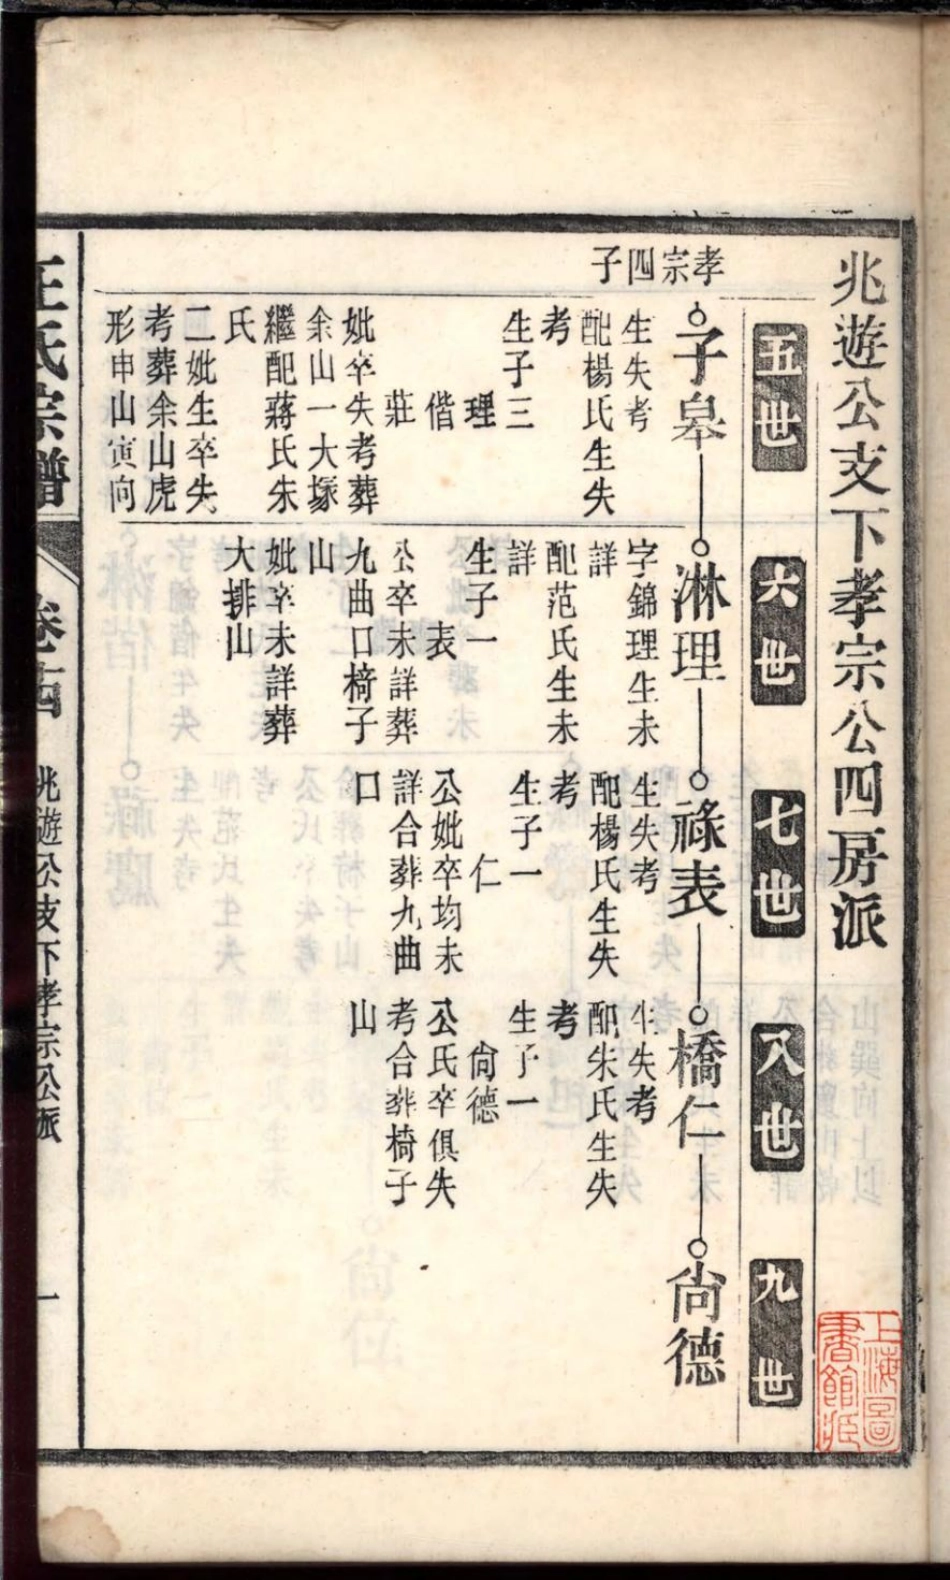 兆遊公支下孝宗公四房派
五世
六世
七世
八世
九世
孝宗四子
子皋
生失考
配楊氏生失
考
生子三
理
偕
莊
妣卒失考葬
余山一大塚
繼配蔣氏朱
氏
二妣生卒失
考葬余山虎
形申山寅向
淋理
字錦理生未
詳
配范氏生未
詳
生子一
表
公卒未詳葬
九曲口椅子
山
妣卒未詳葬
大排山
祿表
生失考
配楊氏生失
考
生子一
仁
公妣卒均未
詳合葬九曲
口
橋仁
生失考
配朱氏生失
考
生子一
尙德
公氏卒俱失
考合葬椅子
山
尙德
王氏宗譜
卷十四
兆遊公支下孝宗公派
一
上海圖書館藏